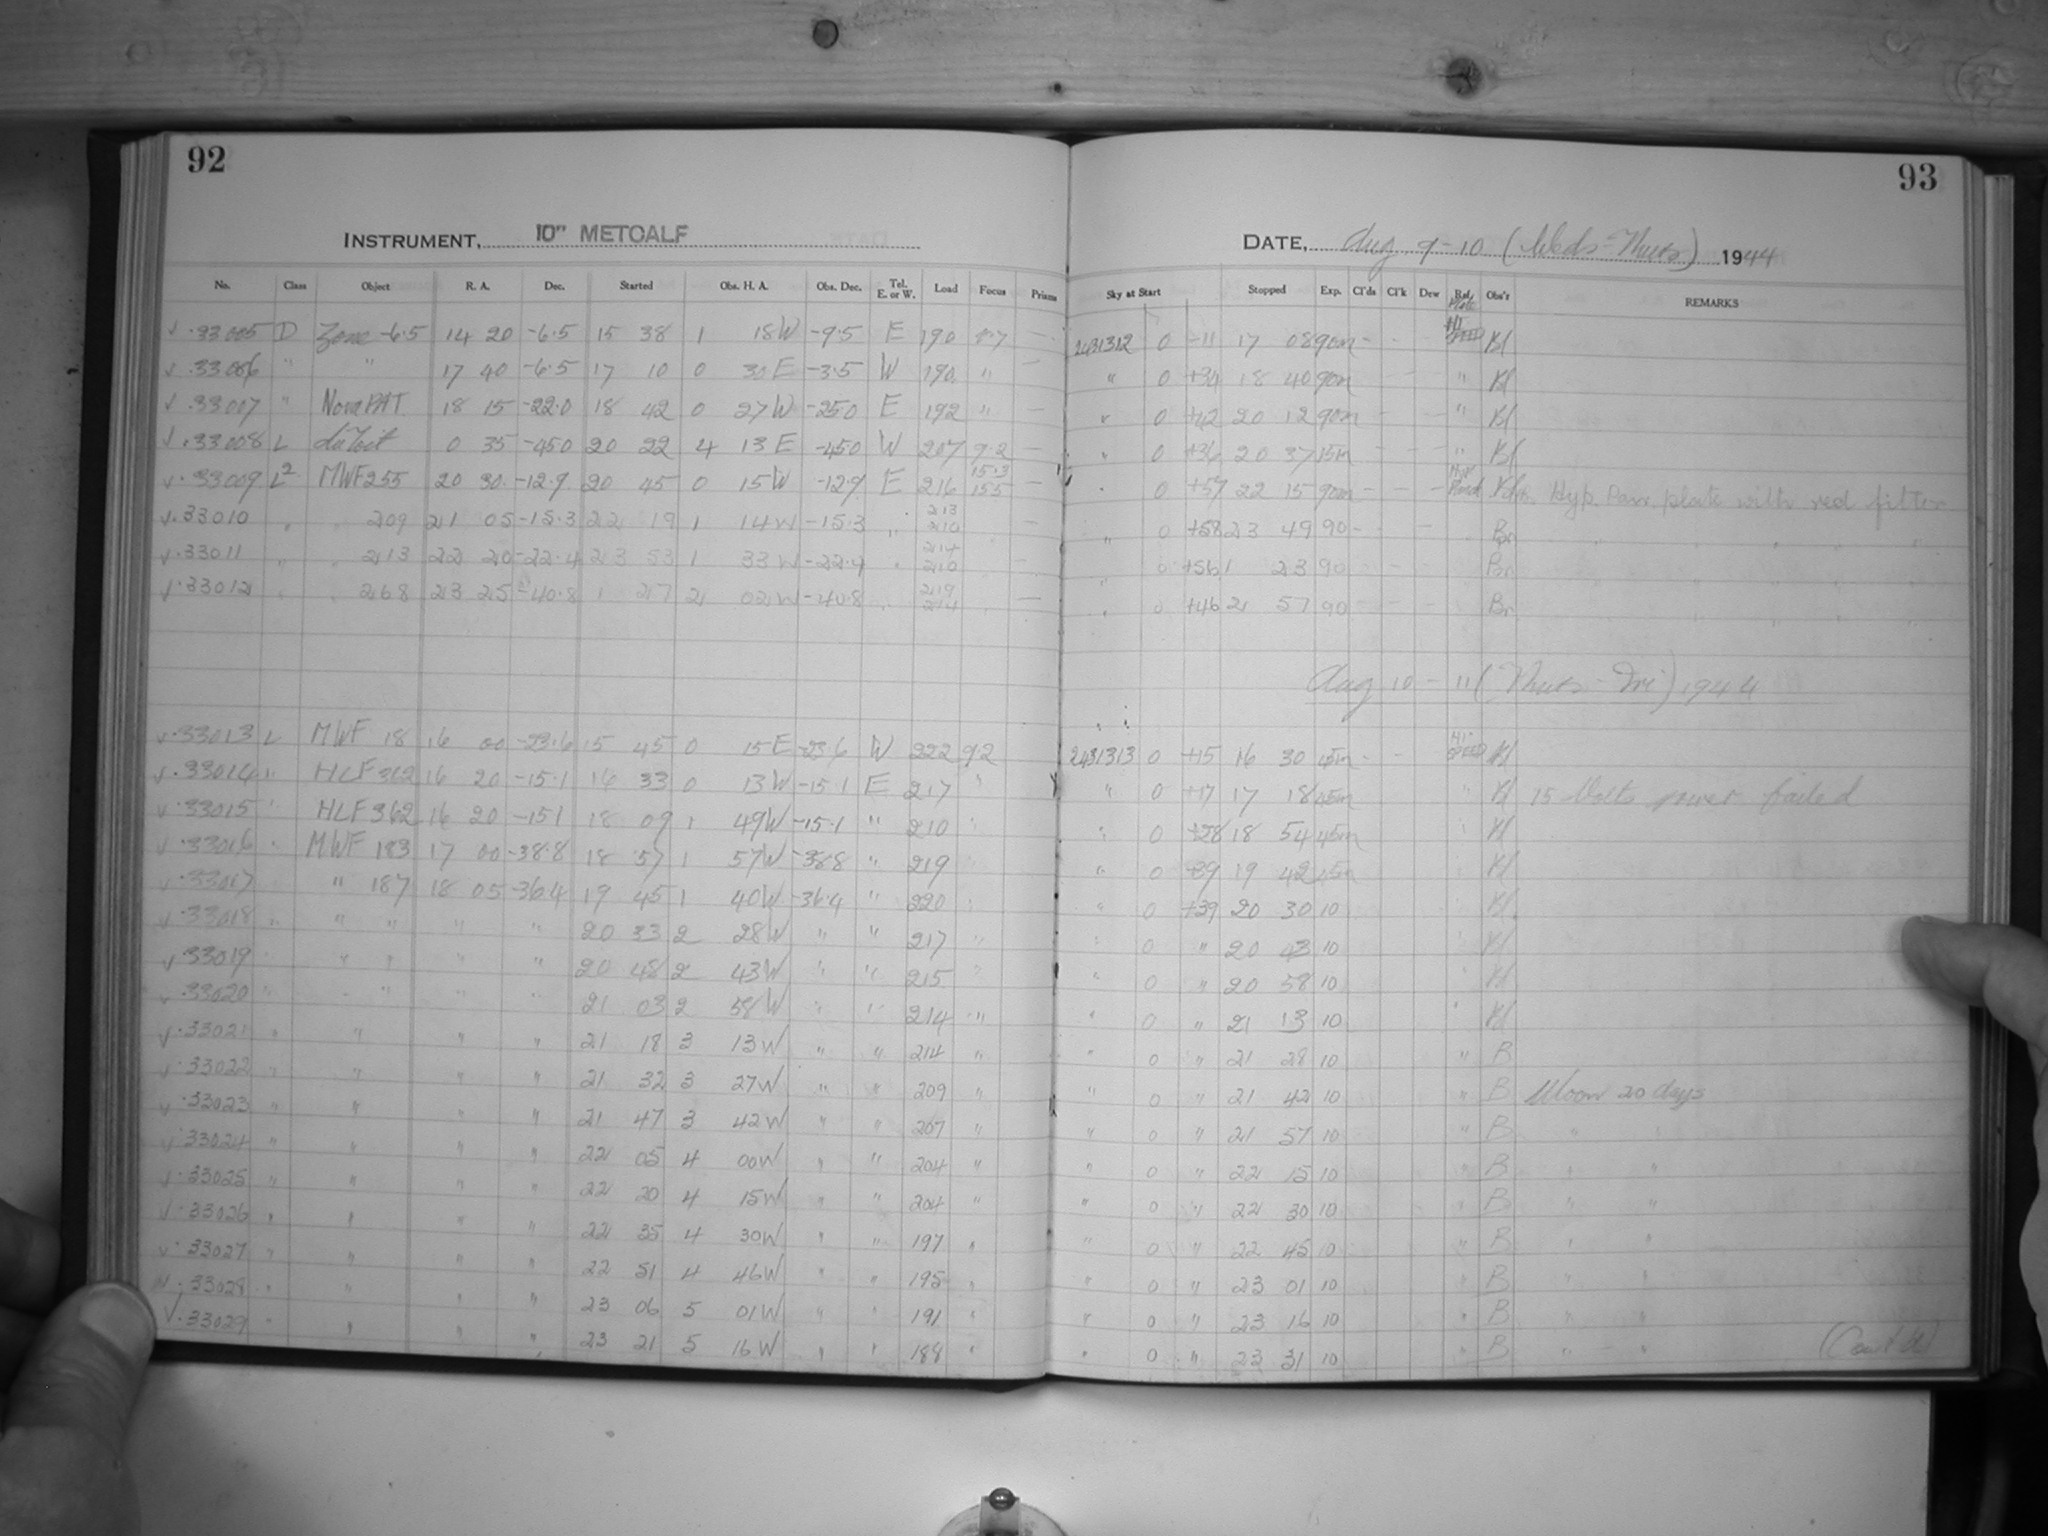 92
93
INSTRUMENT, 10" METCALF
DATE, Aug 9-10 (Weds-Thurs) 1944
No. Class Object R. A. Dec. Started Obs. H. A. Obs. Dec. Tel. E. or W. Load Focus Prisms Sky at Start Stopped Exp. Cl'ds Cl'k Dew Obs'r REMARKS
33005 D Zone -6.5 14 20 -6.5 15 38 1 18W -9.5 E 190 9.7 — 2431312 0 -11 17 08 90m - - - HI SPEED Bl
33006 " " 17 40 -6.5 17 10 0 30E -3.5 W 190 " — " 0 +34 18 40 90m " Bl
33007 " Nova PAT. 18 15 -22.0 18 42 0 27W -25.0 E 192 " — " 0 +42 20 12 90m " Bl
33008 L duToit 0 35 -45.0 20 22 4 13E -45.0 W 207 9.2 — " 0 +36 20 37 15m " Bl
33009 L2 MWF255 20 30 -12.9 20 45 0 15W -12.9 E 216 15.3 15.5 — " 0 +57 22 15 90m - - - Hyp. Pan. plate with red filter
33010 " " 209 21 05 -15.3 22 19 1 14W -15.3 " 213 210 — " 0 +58 23 49 90 - - Br " " " "
33011 " " 213 22 20 -22.4 23 53 1 33W -22.4 " 214 210 — " 0 +56 1 23 90 - - Br " " " "
33012 " " 268 23 25 -40.8 1 27 2 02W -40.8 " 219 214 — " 0 +46 2 57 90 - - Br " " " "
Aug 10 - 11 (Thurs - Fri) 1944
33013 L MWF 18 16 00 -23.6 15 45 0 15E -23.6 W 222 9.2 2431313 0 +15 16 30 45m - - HI SPEED Bl
33014 " HLF 362 16 20 -15.1 16 33 0 13W -15.1 E 217 " " 0 +17 17 18 45m " Bl 15 Volts power failed
33015 " HLF362 16 20 -15.1 18 09 1 49W -15.1 " 210 " " 0 +28 18 54 45m " Bl
33016 " MWF 183 17 00 -38.8 18 57 1 57W -38.8 " 219 " 0 +39 19 42 45m Bl
33017 " 187 18 05 -36.4 19 45 1 40W -36.4 " 220 " " 0 +39 20 30 10 Bl
33018 " " " " " 20 33 2 28W " " 217 " " 0 " 20 43 10 Bl
33019 " " " " " 20 48 2 43W " " 215 " " 0 " 20 58 10 Bl
33020 " " " " 21 03 2 58W " " 214 " " 0 " 21 13 10 " Bl
33021 " " " " 21 18 3 13W " " 214 " " 0 " 21 28 10 " B
33022 " " " " 21 32 3 27W " " 209 " " 0 " 21 42 10 " B Moon 20 days
33023 " " " " 21 47 3 42W " " 207 " " 0 " 21 57 10 " B " "
33024 " " " " 22 05 4 00W " " 204 " " 0 " 22 15 10 " B " "
33025 " " " " 22 20 4 15W " " 204 " " 0 " 22 30 10 " B " "
33026 " " " " 22 35 4 30W " " 197 " " 0 " 22 45 10 " B " "
33027 " " " " 22 51 4 46W " " 195 " " 0 " 23 01 10 " B " "
33028 " " " " 23 06 5 01W " " 191 " " 0 " 23 16 10 " B " "
33029 " " " " 23 21 5 16W " " 188 " " 0 " 23 31 10 " B " "
(Cont'd)